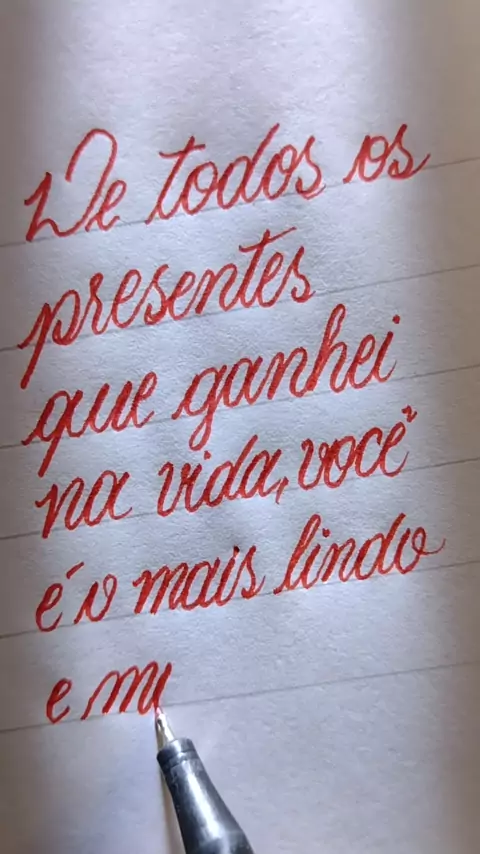 De todos os
presentes
que ganhei
na vida, você
é o mais lindo
e mu